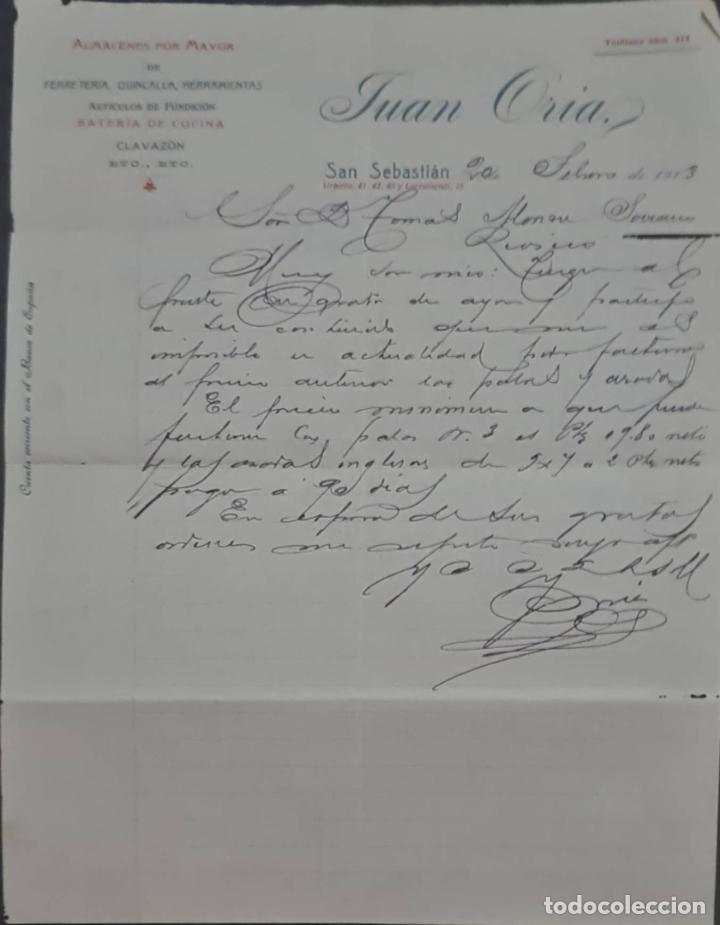 ALMACENES POR MAYOR
DE
FERRETERÍA, QUINCALLA, HERRAMIENTAS
ARTÍCULOS DE FUNDICIÓN
BATERÍA DE COCINA
CLAVAZÓN
ETC., ETC.
Teléfono núm.
Juan Oria.
San Sebastián 20 Febrero de 1913
Urbieta, 41, 43, 45 y Larramendi,
Cuenta corriente con el Banco de España
Señ D Tomas Alonso
Rioseco
Muy Sor mio: Tengo al
frente su grata de ayer y participo
a su contenido que me es
imposible en actualidad poder facturar
al precio anterior las palas y azadas
El precio minimum a que puedo
facturar las palas Nr. 3 es Pts 0'98 neto
y las azadas inglesas de 2 Pts neto
pago a 90 dias
En espera de sus gratas
ordenes me repito suyo aff
Oria
todocoleccion